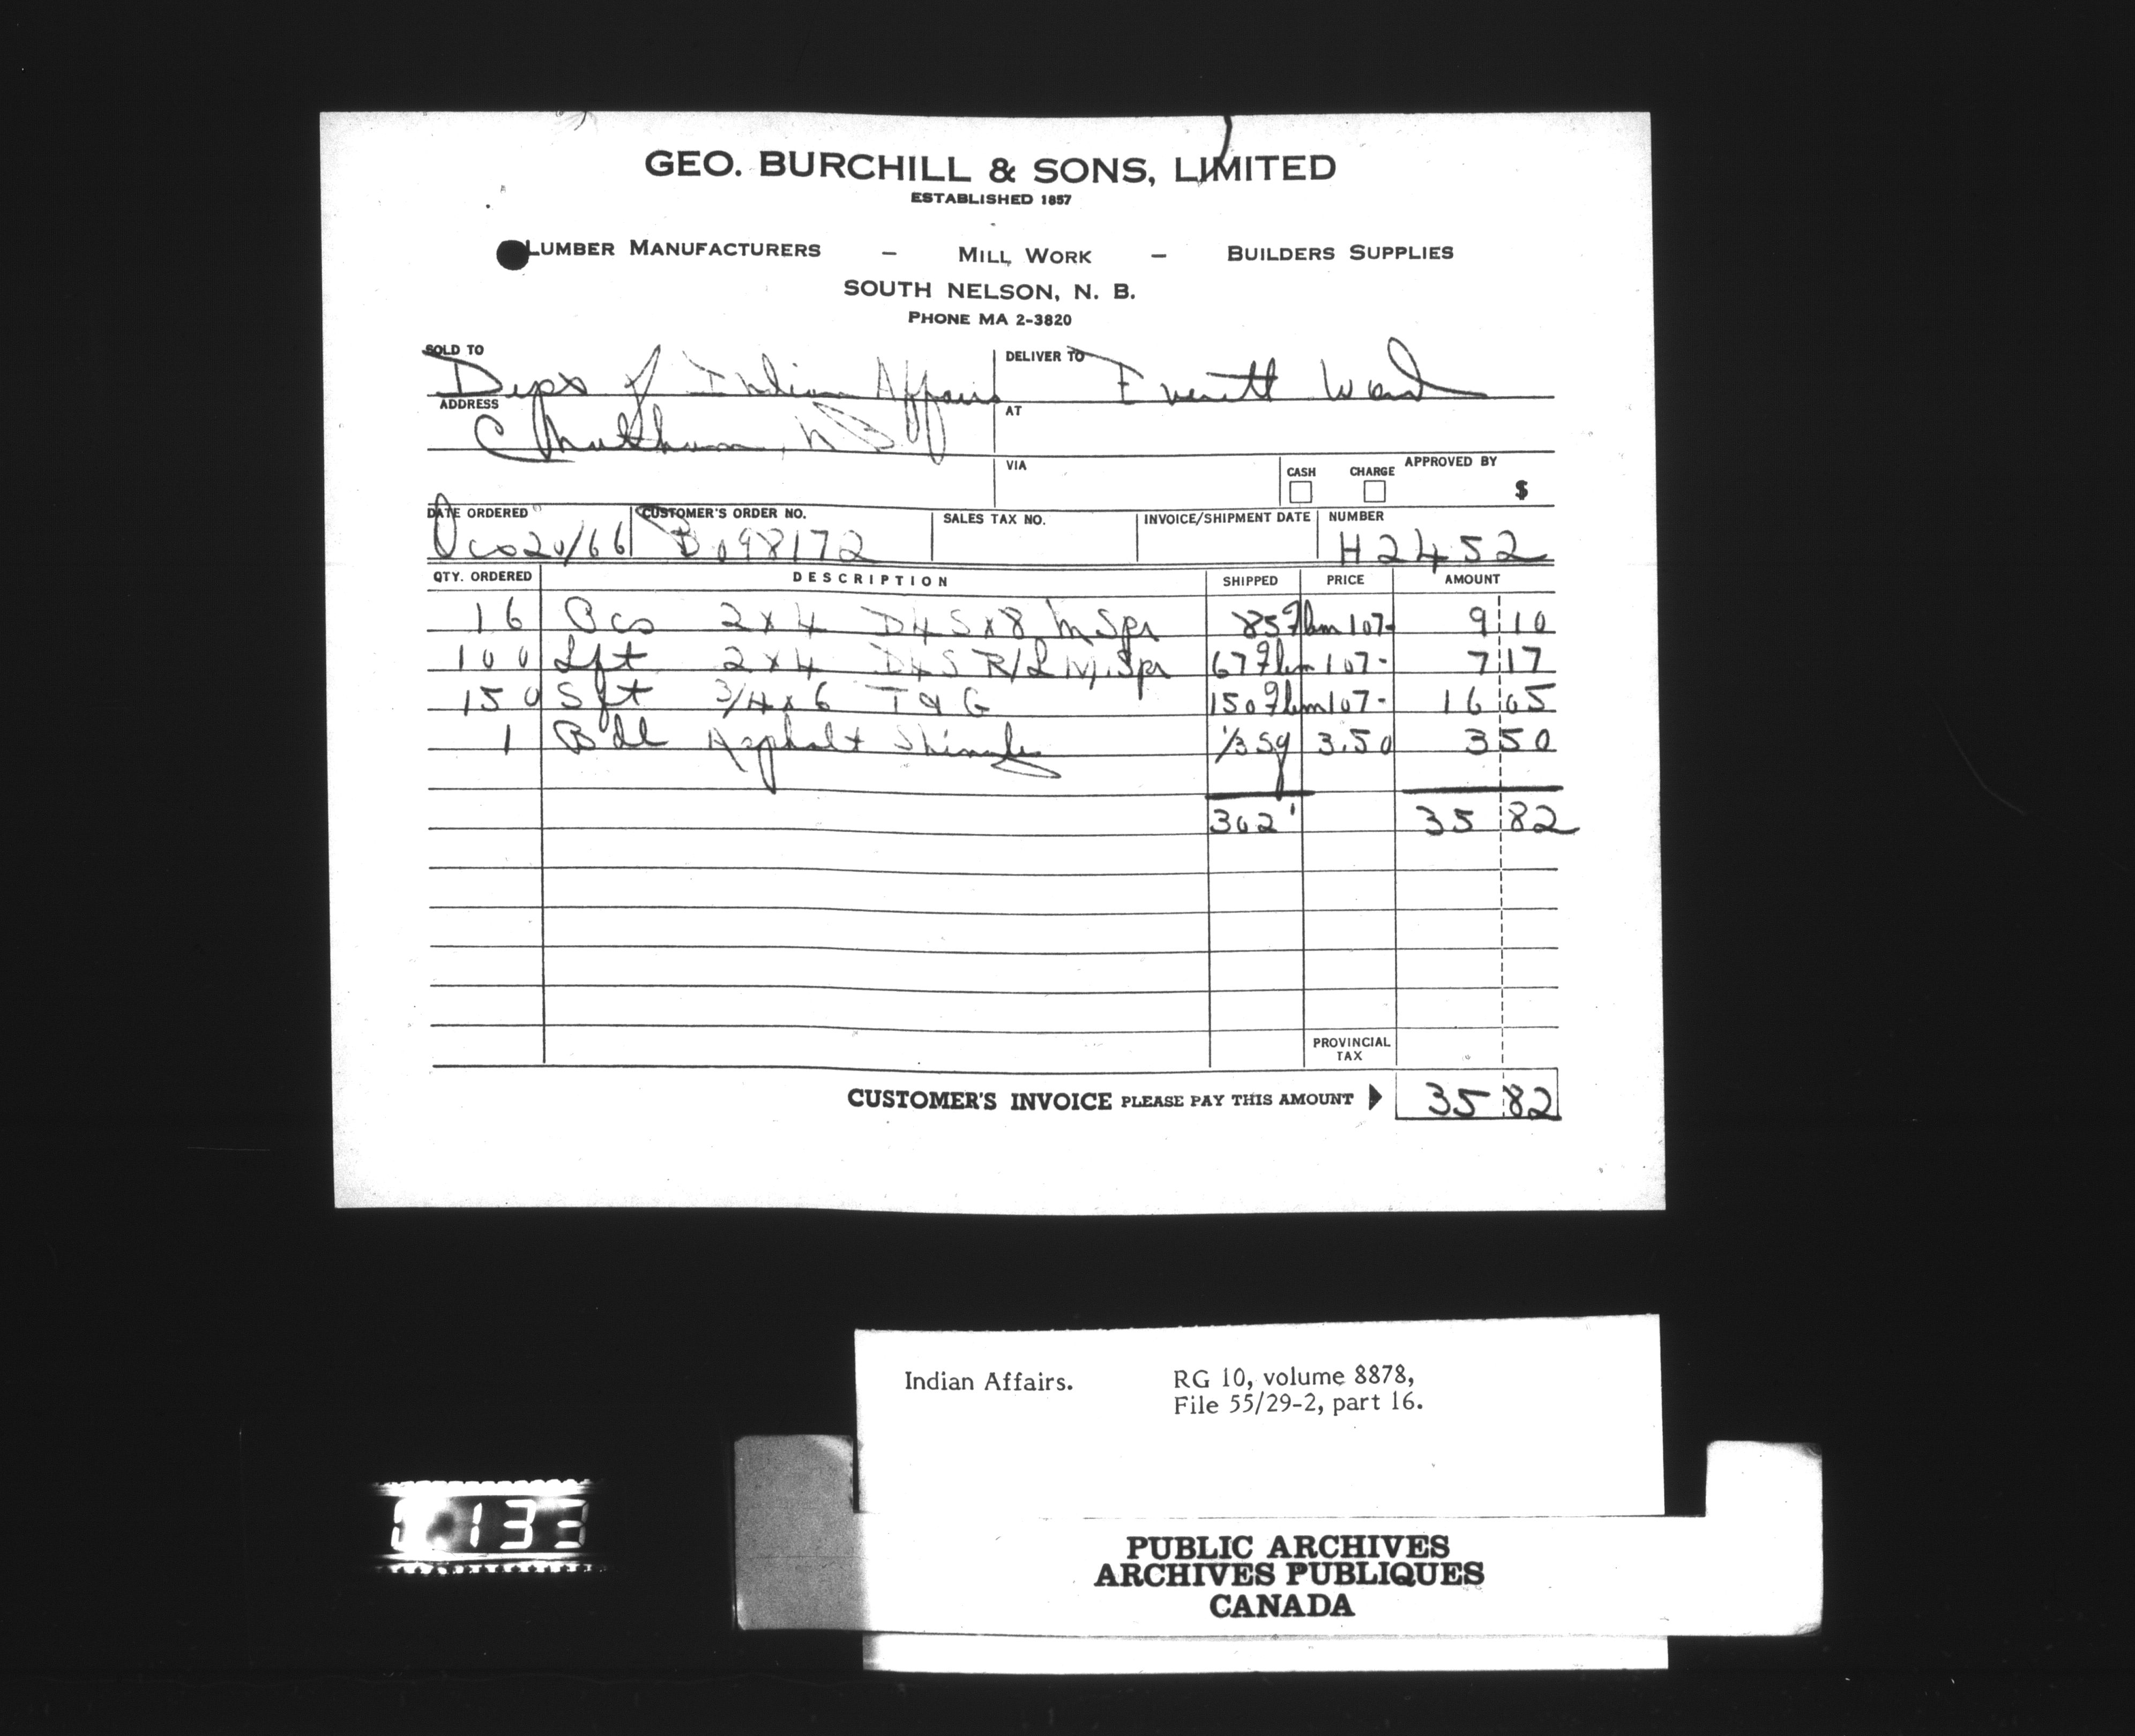 GEO. BURCHILL & SONS, LIMITED
ESTABLISHED 1857
LUMBER MANUFACTURERS – MILL WORK – BUILDERS SUPPLIES
SOUTH NELSON, N. B.
PHONE MA 2-3820
SOLD TO Dept of Indian Affairs DELIVER TO Everett Ward
ADDRESS Chatham, NB AT
VIA CASH CHARGE APPROVED BY $
DATE ORDERED CUSTOMER'S ORDER NO. SALES TAX NO. INVOICE/SHIPMENT DATE NUMBER
20/66 B 098172 H2452
QTY. ORDERED DESCRIPTION SHIPPED PRICE AMOUNT
16 Pcs 2x4 D4Sx8 M Spr 85 fbm 107- 9 10
100 Lft 2x4 D4S R/L M Spr 67 fbm 107- 7 17
150 Sft 3/4x6 T&G 150 fbm 107- 16 05
1 Bdl Asphalt Shingles 1/3 Sq 3.50 3 50
302' 35 82
PROVINCIAL TAX
CUSTOMER'S INVOICE PLEASE PAY THIS AMOUNT 35 82
Indian Affairs. RG 10, volume 8878,
File 55/29-2, part 16.
133
PUBLIC ARCHIVES
ARCHIVES PUBLIQUES
CANADA